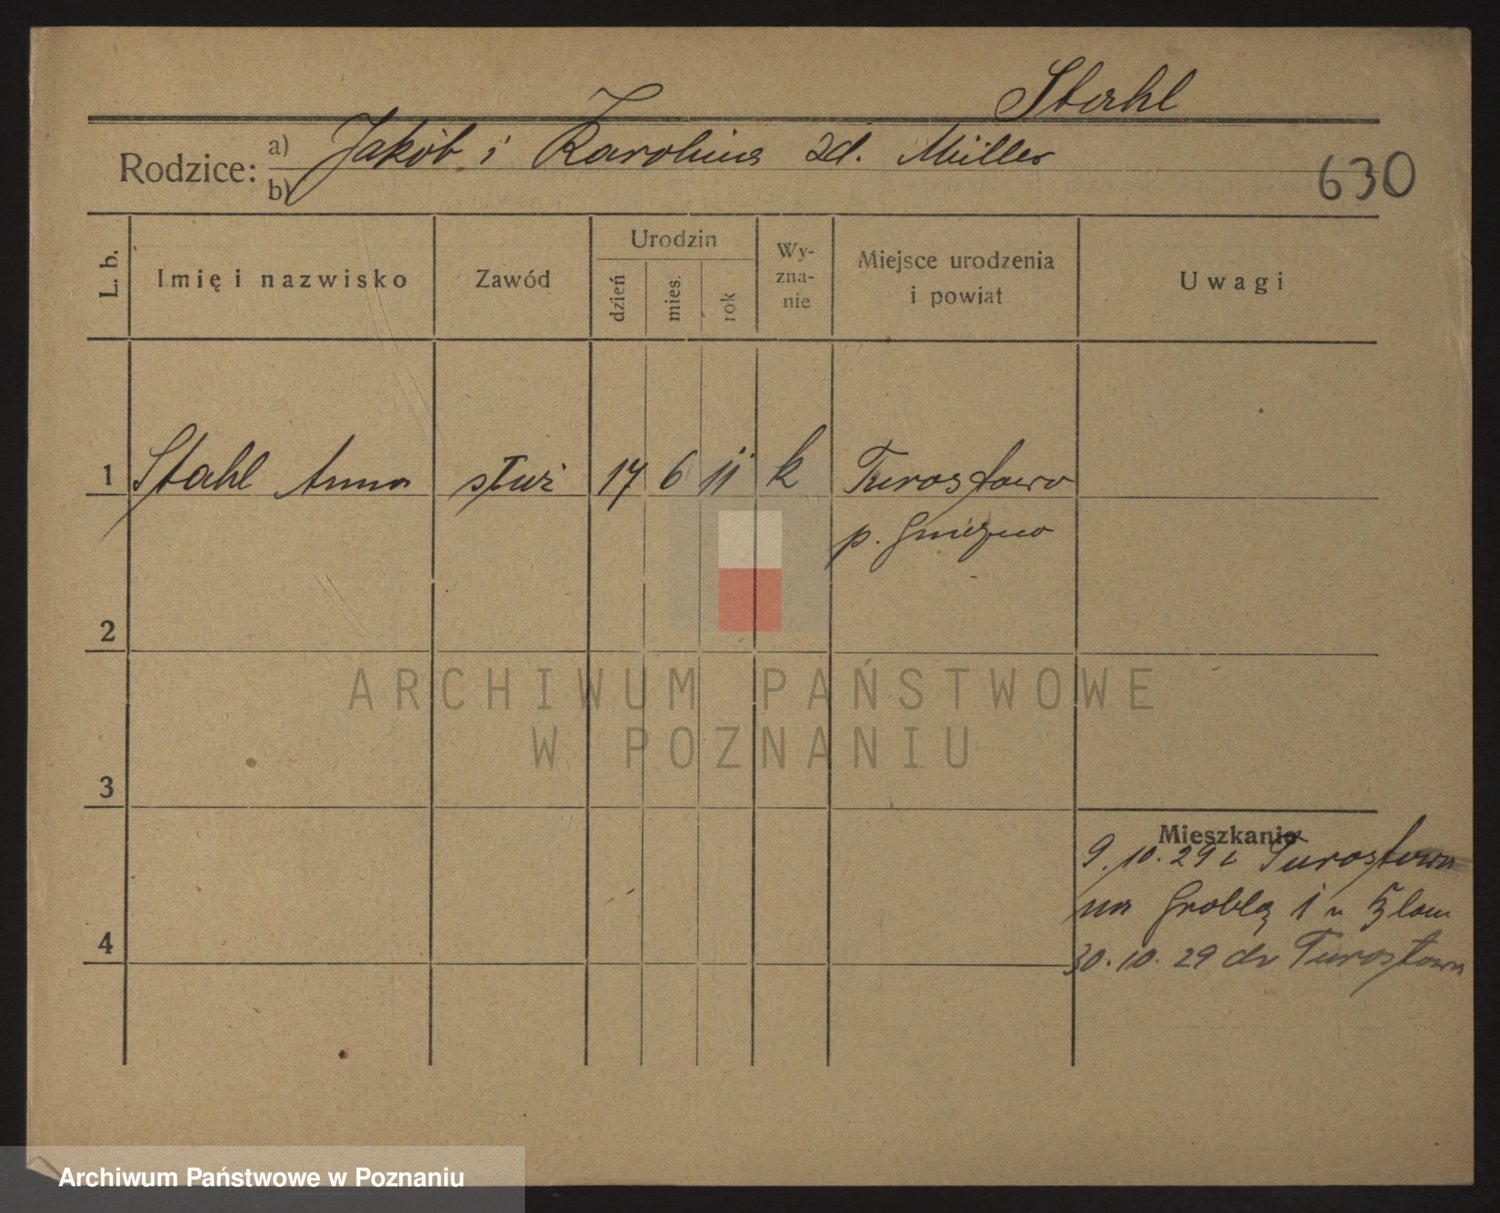 Stahl
Rodzice: a) Jakób i Karolina zd. Müller
b)
630
L. b.
Imię i nazwisko
Zawód
Urodzin
dzień
mies.
rok
Wy-
zna-
nie
Miejsce urodzenia
i powiat
Uwagi
1 Stahl Anna służ 17 6 11 k Turostowo
p. Gniezno
2
ARCHIWUM PAŃSTWOWE
W POZNANIU
3
Mieszkanie
9.10.29 z Turostowa
na Groblę 1 u
4
30.10.29 do Turostowa
Archiwum Państwowe w Poznaniu